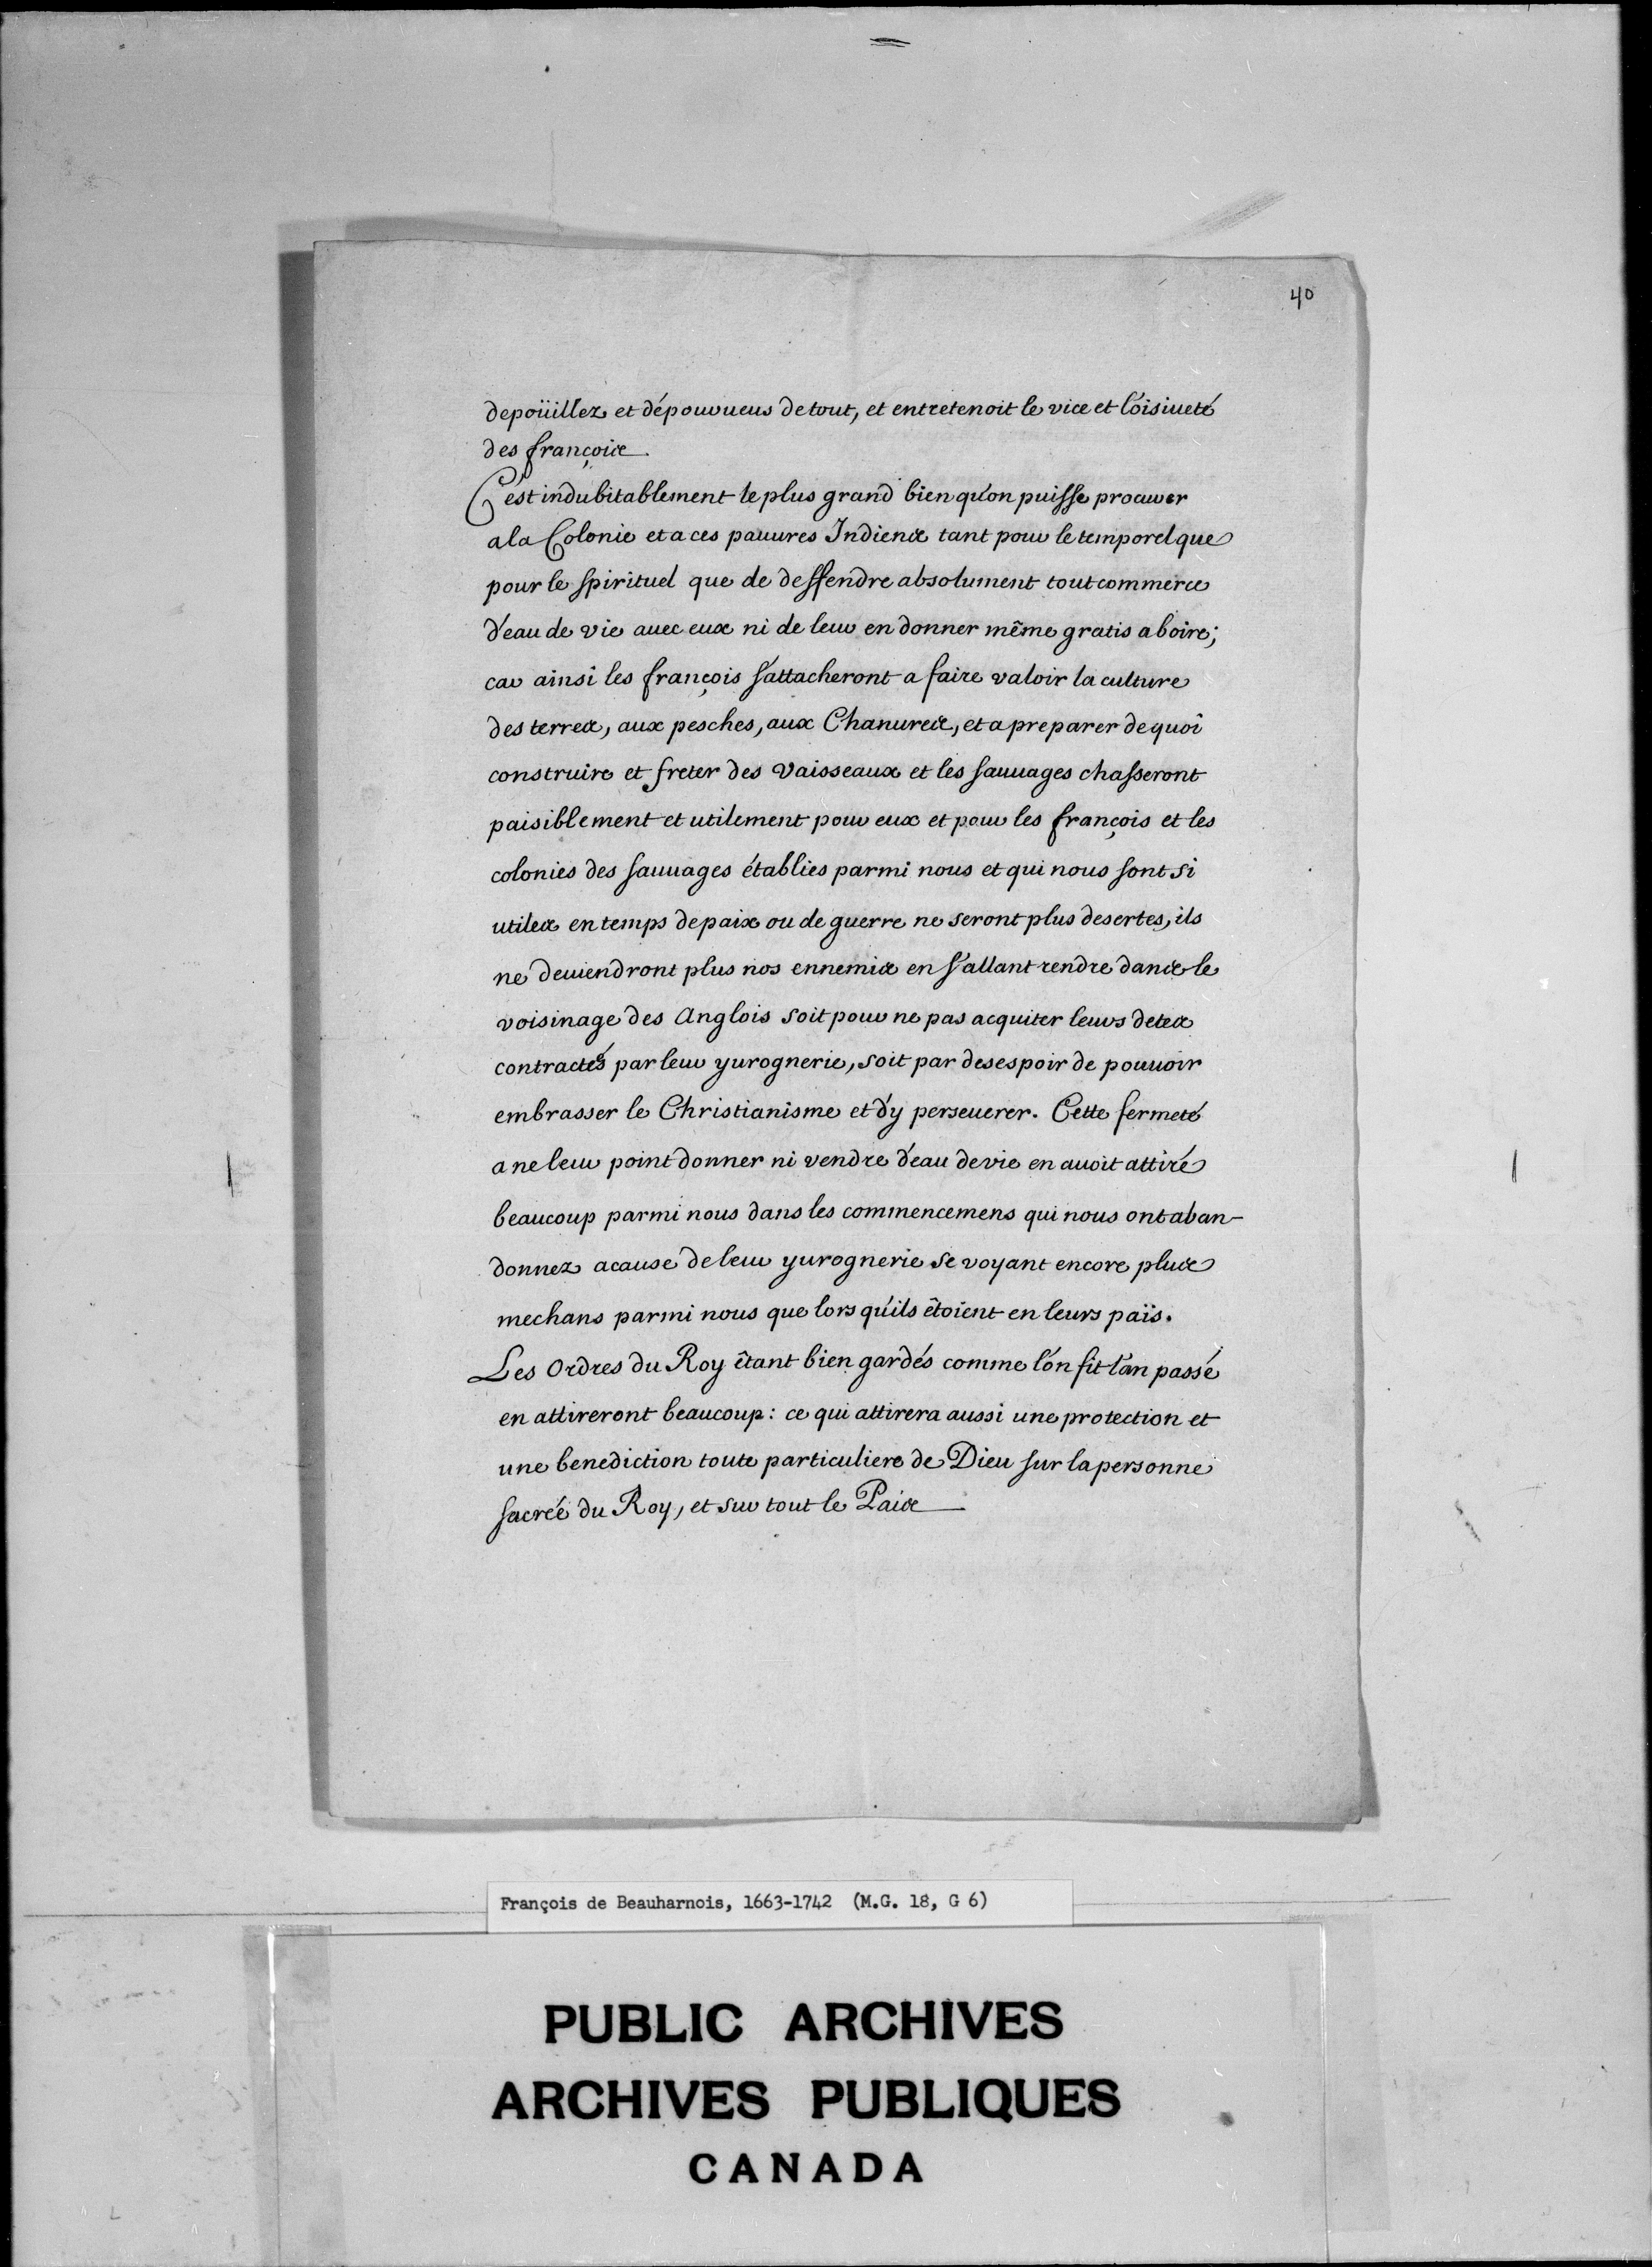 40
depoüillez et dépourueus de tout, et entretenoit le vice et l'oisiueté
des françois.
C'est indubitablement le plus grand bien qu'on puisse procurer
a la Colonie et a ces pauures Indiens tant pour le temporel que
pour le spirituel que de deffendre absolument tout commerce
d'eau de vie auec eux ni de leur en donner même gratis a boire;
car ainsi les françois s'attacheront a faire valoir la culture
des terres, aux pesches, aux Chanures, et a preparer de quoi
construire et freter des Vaisseaux et les sauuages chasseront
paisiblement et utilement pour eux et pour les françois et les
colonies des sauuages établies parmi nous et qui nous sont si
utiles en temps de paix ou de guerre ne seront plus desertes, ils
ne deuiendront plus nos ennemis en s'allant rendre dans le
voisinage des Anglois soit pour ne pas acquiter leurs detes
contractés par leur yurognerie, soit par desespoir de pouuoir
embrasser le Christianisme et d'y perseuerer. Cette fermeté
a ne leur point donner ni vendre d'eau de vie en auoit attiré
beaucoup parmi nous dans les commencemens qui nous ont aban-
donnez acause de leur yurognerie se voyant encore plus
mechans parmi nous que lors qu'ils êtoient en leurs païs.
Les Ordres du Roy êtant bien gardés comme l'on fit l'an passé
en attireront beaucoup: ce qui attirera aussi une protection et
une benediction toute particuliere de Dieu sur la personne
sacrée du Roy, et sur tout le Païs
François de Beauharnois, 1663-1742 (M.G. 18, G 6)
PUBLIC ARCHIVES
ARCHIVES PUBLIQUES
CANADA